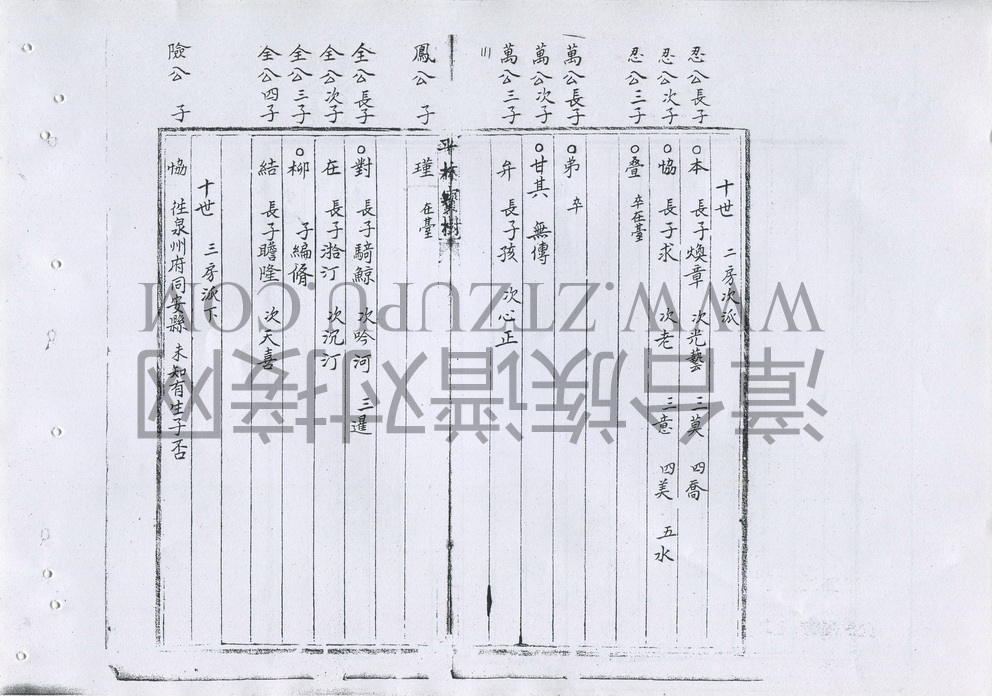 十世 二房次派
忍公長子 本 長子煥章 次光藝 三莫 四喬
忍公次子 協 長子求 次老 三意 四美 五水
忍公三子 叠 卒在臺
萬公長子 弟 卒
萬公次子 甘其 無傳
萬公三子 弁 長子孩 次心正
鳳公子 瑾 在臺
全公長子 對 長子騎鯨 次吟河 三暹
全公次子 在 長子湁汀 次沉汀
全公三子 柳 子編脩
全公四子 結 長子瞻隆 次天喜
十世 三房派下
險公子 恊 徃泉州府同安縣 未知有生子否
WWW.ZTZUPU.COM
漳台族谱对接网